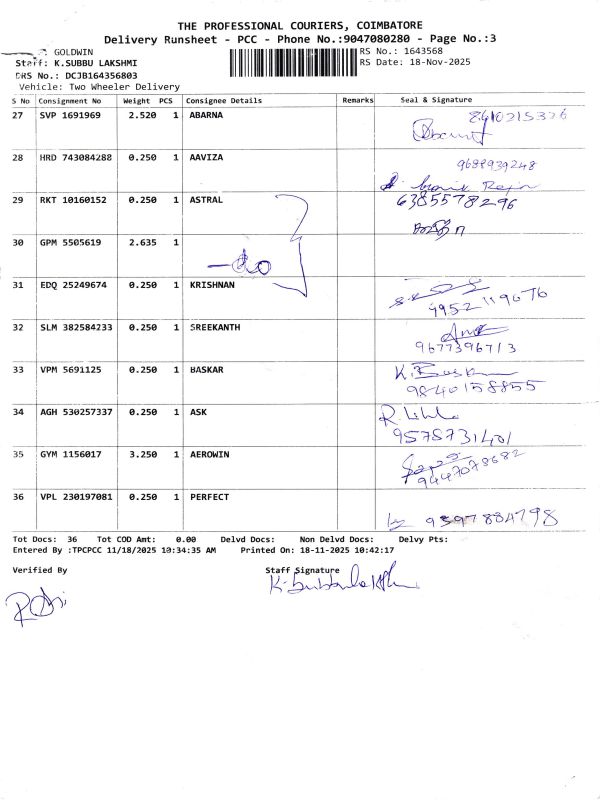 THE PROFESSIONAL COURIERS, COIMBATORE
Delivery Runsheet - PCC - Phone No.:9047080280 - Page No.:3
: GOLDWIN
RS No.: 1643568
Staff: K.SUBBU LAKSHMI
RS Date: 18-Nov-2025
DRS No.: DCJB164356803
Vehicle: Two Wheeler Delivery
S No Consignment No Weight PCS Consignee Details Remarks Seal & Signature
27 SVP 1691969 2.520 1 ABARNA 8610215326
28 HRD 743084288 0.250 1 AAVIZA 9688939248
29 RKT 10160152 0.250 1 ASTRAL 6385578296
30 GPM 5505619 2.635 1
-do
31 EDQ 25249674 0.250 1 KRISHNAN
9952119676
32 SLM 382584233 0.250 1 SREEKANTH
9677396713
33 VPM 5691125 0.250 1 BASKAR K. Bask
9840158855
34 AGH 530257337 0.250 1 ASK
9578731401
35 GYM 1156017 3.250 1 AEROWIN
9447078682
36 VPL 230197081 0.250 1 PERFECT
9597884798
Tot Docs: 36 Tot COD Amt: 0.00 Delvd Docs: Non Delvd Docs: Delvy Pts:
Entered By :TPCPCC 11/18/2025 10:34:35 AM Printed On: 18-11-2025 10:42:17
Verified By Staff Signature
K. Subbulakshmi